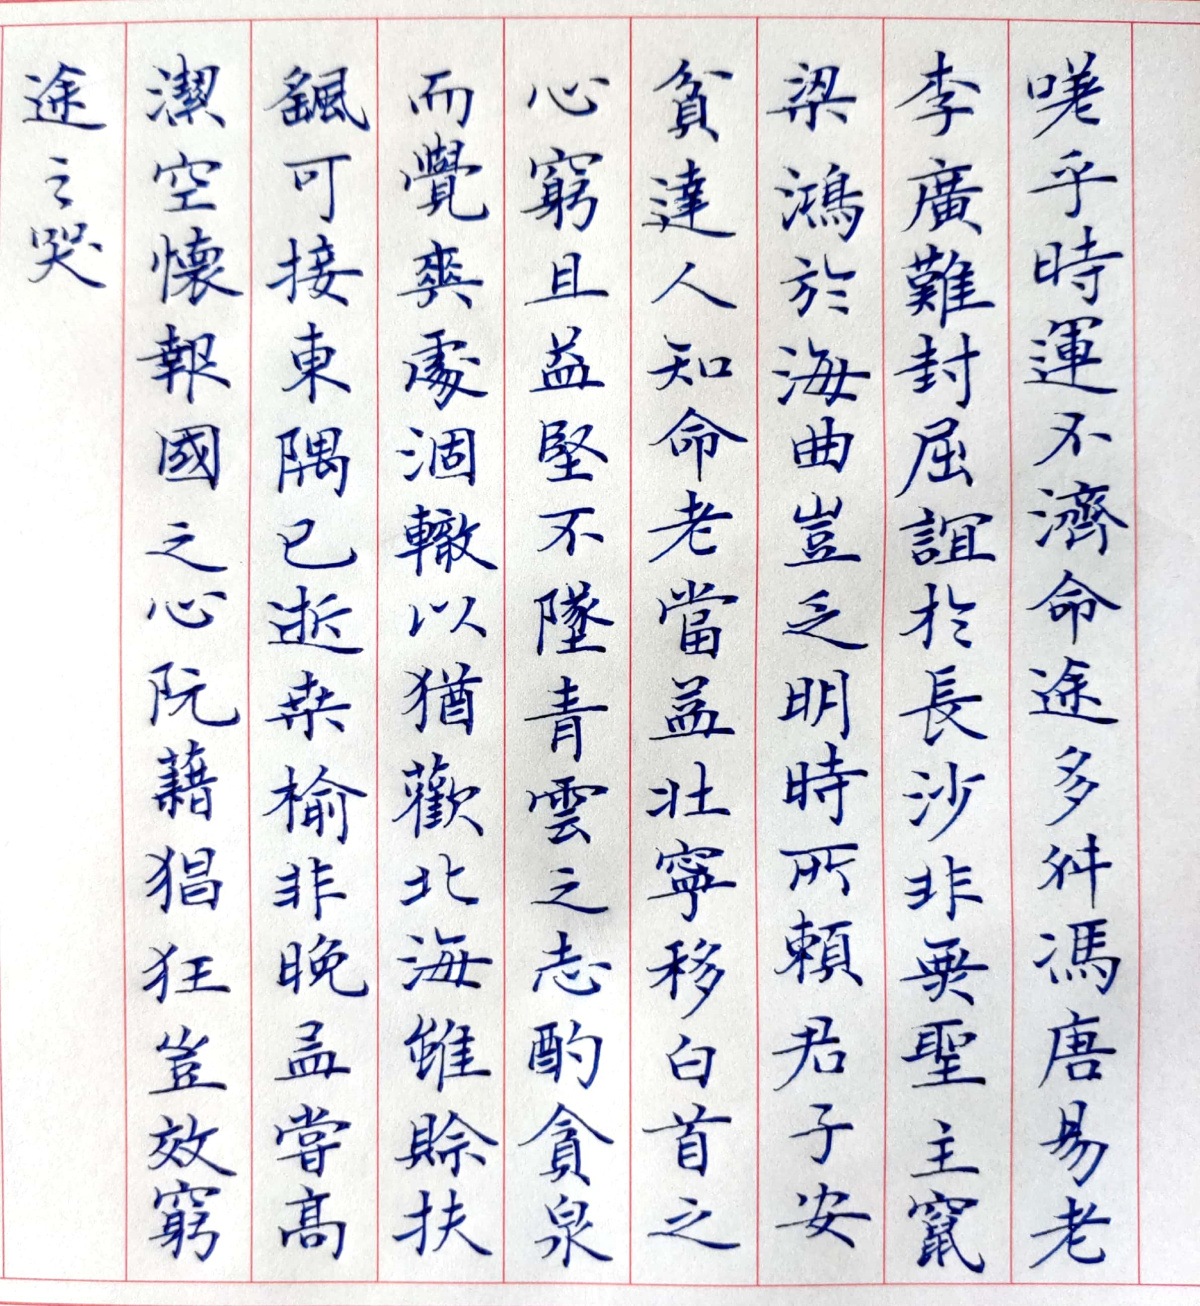 嗟乎時運不濟命途多舛馮唐易老
李廣難封屈誼於長沙非無聖主竄
梁鴻於海曲豈乏明時所賴君子安
貧達人知命老當益壯寧移白首之
心窮且益堅不墜青雲之志酌貪泉
而覺爽處涸轍以猶歡北海雖賒扶
飆可接東隅已逝桑榆非晚孟嘗高
潔空懷報國之心阮藉猖狂豈效窮
途之哭